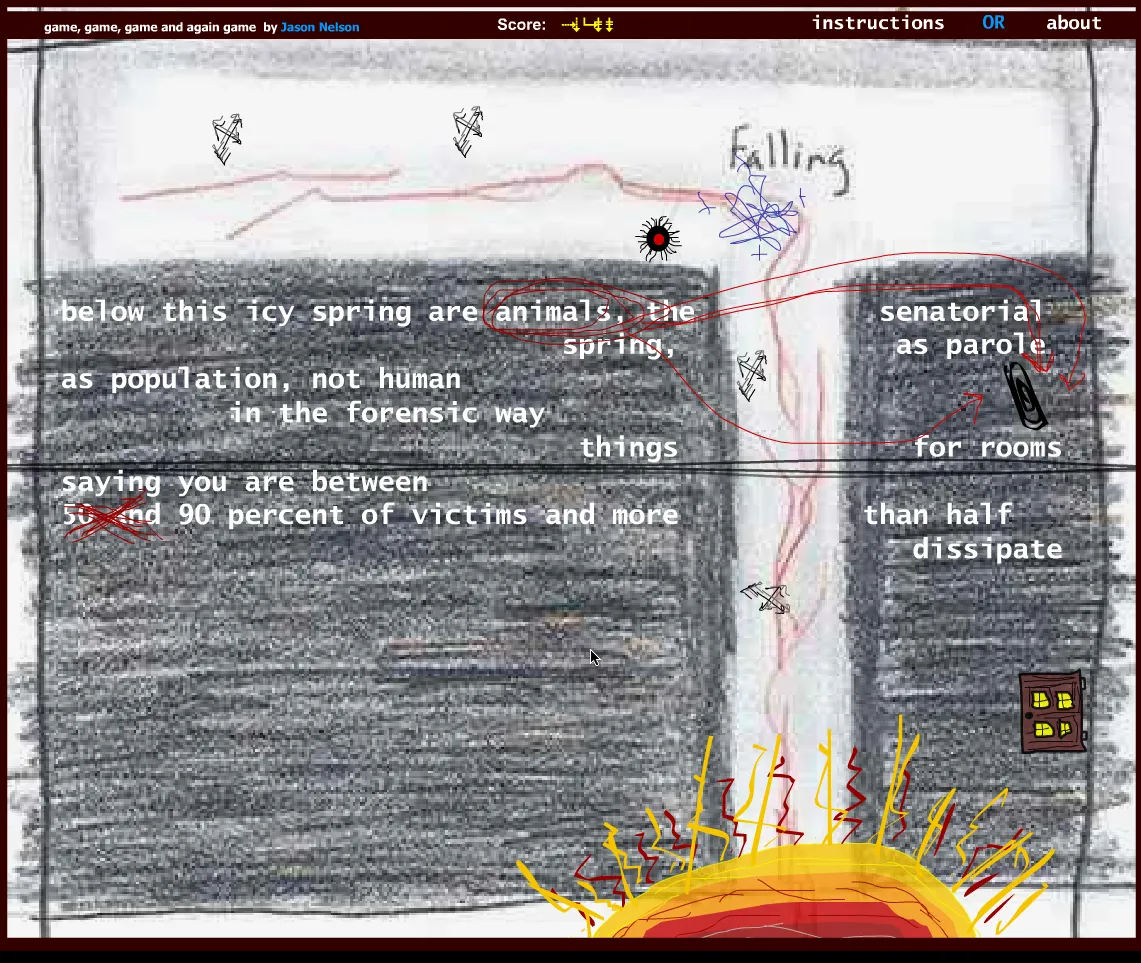 game, game, game and again game by Jason Nelson
Score:
instructions OR about
Falling
below this icy spring are animals, the senatorial
spring, as parole
as population, not human
in the forensic way
things for rooms
saying you are between
50 and 90 percent of victims and more than half
dissipate